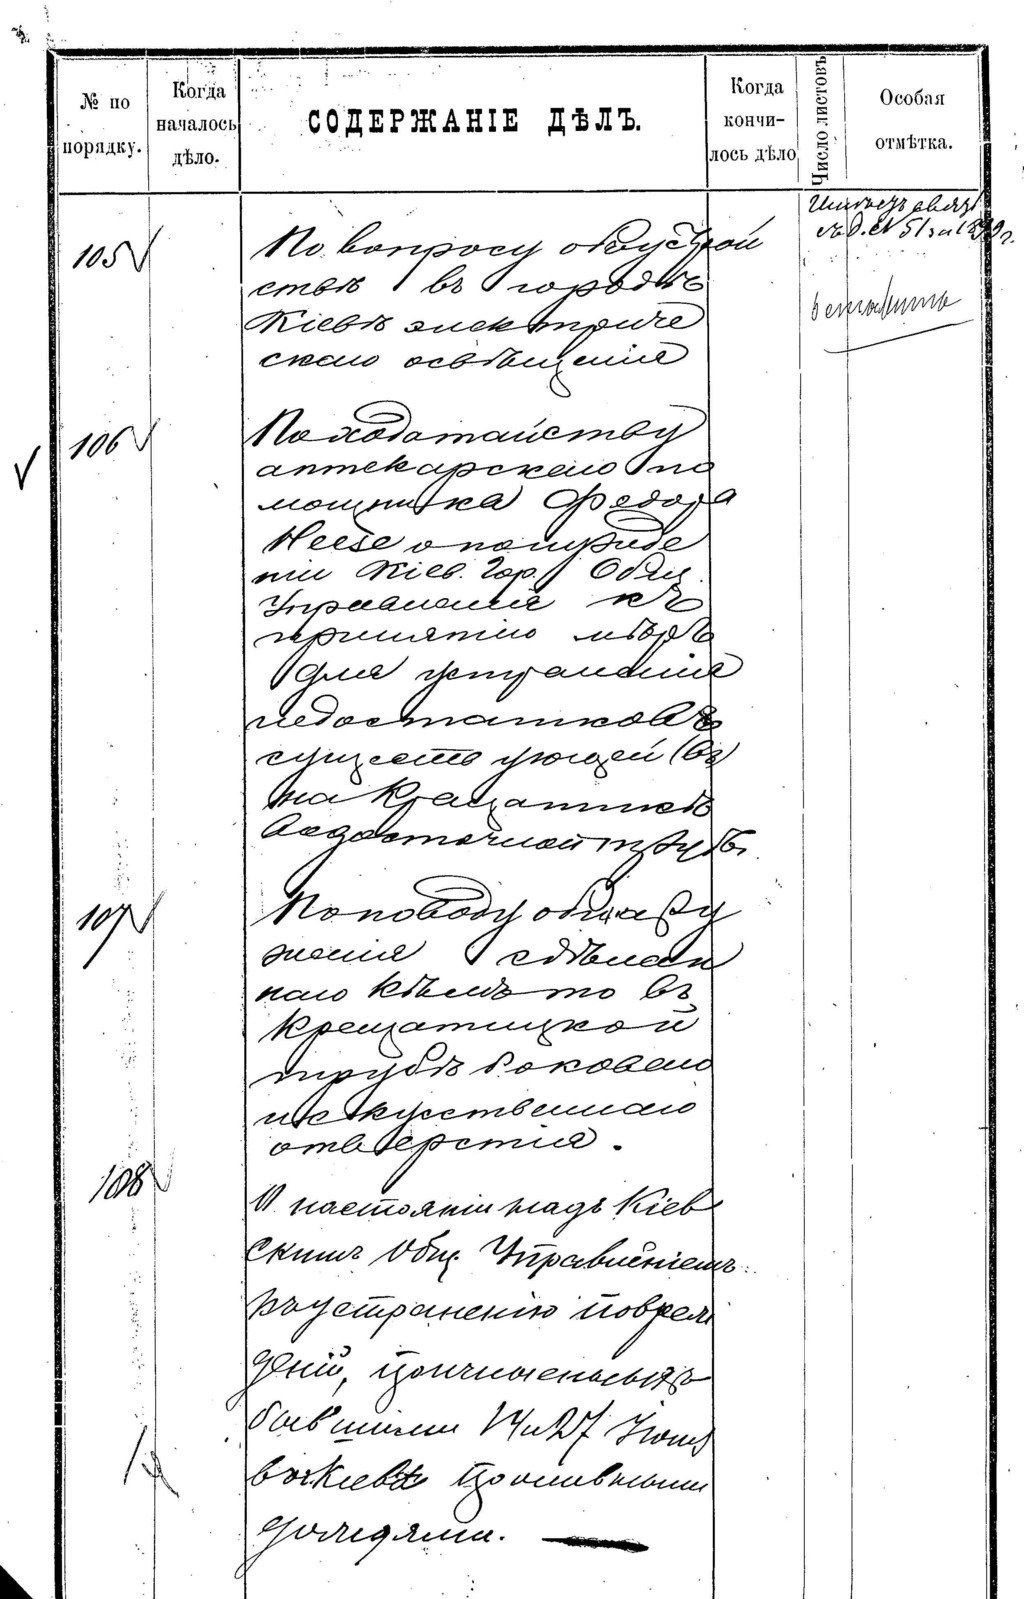 № по порядку.
Когда началось дѣло.
СОДЕРЖАНІЕ ДѢЛЪ.
Когда кончилось дѣло
Число листовъ
Особая отмѣтка.
105
По вопросу объ устрой
ствѣ въ городѣ
Кіевѣ электриче
скаго освѣщенія
106
По ходатайству
аптекарскаго по
мощника Федора
Неезе о понужде
ніи Кіев. Гор. Общ.
Управленія къ
принятію мѣръ
для устраненія
недостатковъ
существующей (въ)
на Крещатикѣ
водосточной трубѣ
107
По поводу обнару
женія сдѣлан
наго кѣмъ то въ
Крещатицкой
трубѣ боковаго
искусственнаго
отверстія.
108
О настояніи надъ Кіев
скимъ Общ. Управленіемъ
къ устраненію повреж
деній, причиненныхъ
бывшими 14 и 27 Іюня
въ г. Кіевѣ проливными
дождями.